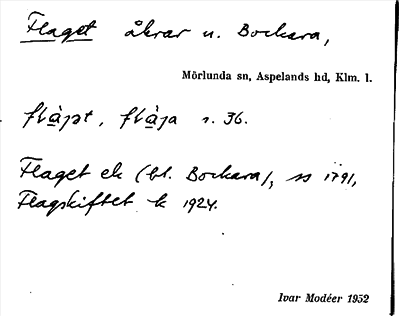 Flaget åkrar u. Bockara,
Mörlunda sn, Aspelands hd, Klm. l.
flàjət, flàja s. 36.
Flaget ek (bl. Bockara), ss 1791,
Flagskiftet k 1924.
Ivar Modéer 1932